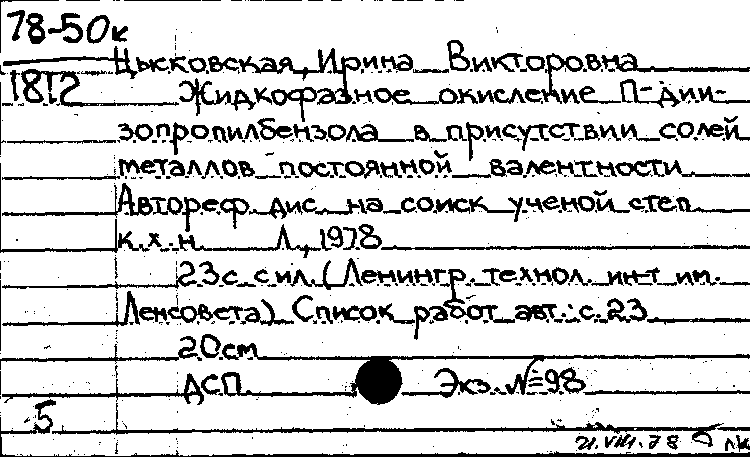 78-50к
1812
Цысковская, Ирина Викторовна
Жидкофазное окисление П-дии-
зопропилбензола в присутствии солей
металлов постоянной валентности
Автореф. дис. на соиск ученой степ.
к.х.н. Л., 1978
23с. с ил. (Ленингр. технол. ин-т им.
Ленсовета) Список работ авт.: с. 23
20см
ДСП Экз. №98
5
21.VIII.78